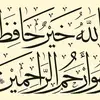 الله خير حافظا
وهو أرحم الراحمين